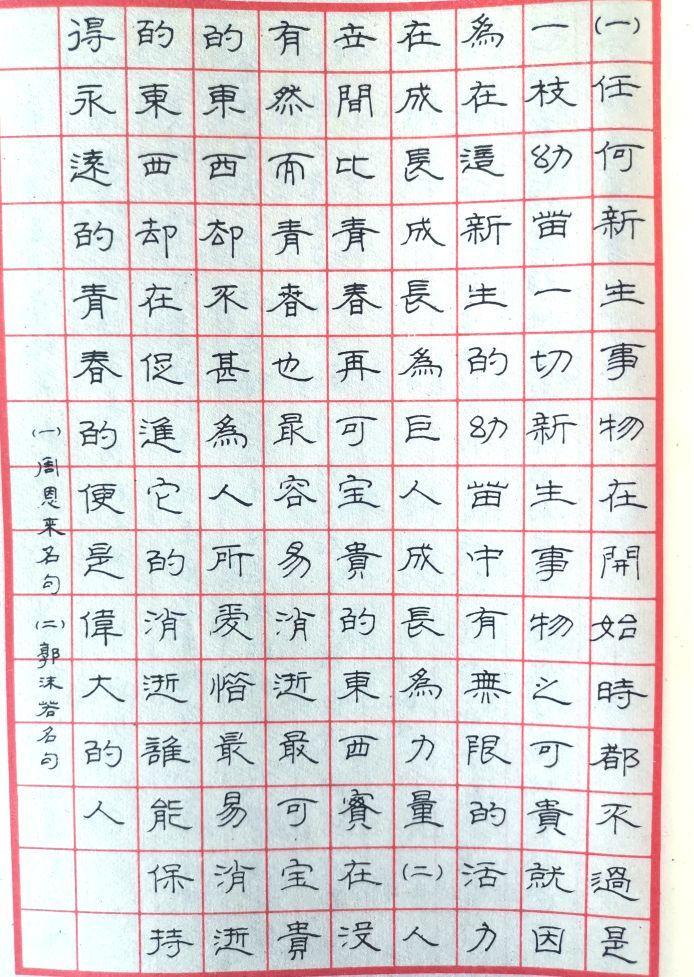 (一)任何新生事物在開始時都不過是
一枝幼苗一切新生事物之可貴就因
為在這新生的幼苗中有無限的活力
在成長成長為巨人成長為力量(二)人
世間比青春再可宝貴的東西實在没
有然而青春也最容易消逝最可宝貴
的東西却不甚為人所愛惜最易消逝
的東西却在促進它的消逝誰能保持
得永遠的青春的便是偉大的人
(一)周恩来名句(二)郭沫若名句